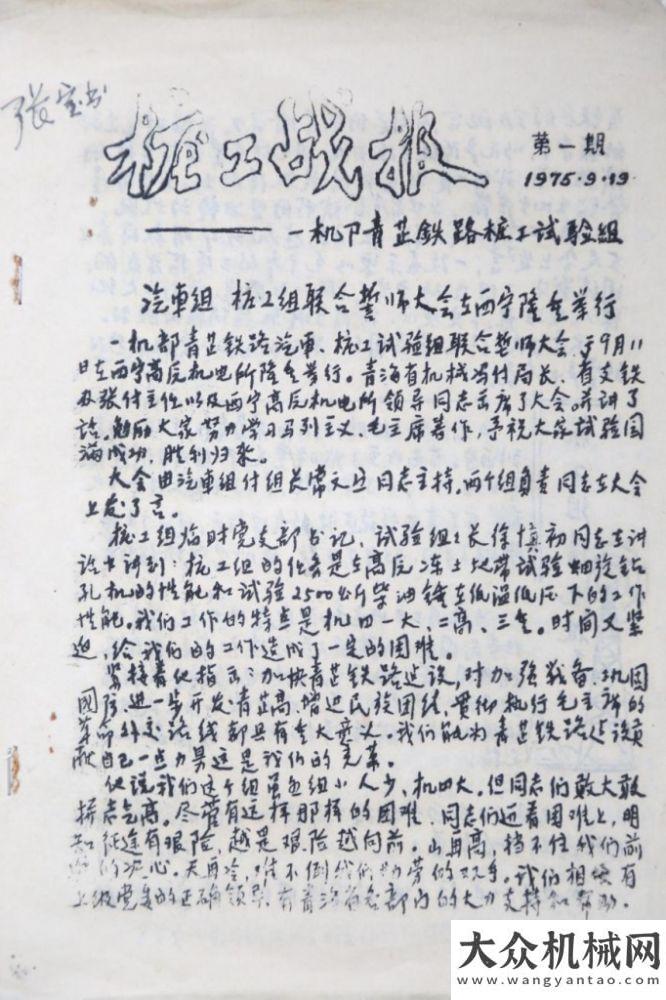 张宝书
桩工战报
第一期
1975.9.19.
一机卩青芷鉄路桩工试验组
汽車组 桩工组联合誓师大会在西宁隆重举行
一机部青芷鉄路汽車、桩工试验组联合誓师大会于9月11
日在西宁高反机电所隆重举行。青海省机械局付局长、省支鉄
办张付主任以及西宁高反机电所领导同志出席了大会。并讲了
话。勉励大家努力学习马列主义、毛主席著作,予祝大家试验圆
满成功,胜利归来。
大会由汽車组付组长常元 同志主持。两个组负责同志在大会
上发了言。
桩工组临时党支部书记、试验组组长徐慎初同志在讲
话中讲到:桩工组的任务是在高反冻土地带试验 旋钻
孔机的性能和试验2500公斤柴油锤在低温低压下的工作
性能。我们工作的特点是机四一大、二高、三重。时间又紧
迫,给我们的工作造成了一定的困难。
紧接着他指出:加快青芷鉄路建设,对加强战备、巩固
國防、进一步开发青芷高、增进民族团结、贯彻执行毛主席的
革命外交路线都具有重大意义。我们能为青芷鉄路建设贡
献自己一点力量这是我们的光荣。
他说我们这个组虽然组小人少、机四大。但同志们敢大敢
拼志气高。尽管有这样那样的困难、同志们迎着困难上,明
知征途有艰险,越是艰险越向前。山再高,档不住我们前
进的决心。天再冷,难不倒我们勤劳的双手。我们相信有
上级党委的正确领导,有青海省各部门的大力支持和帮助.
大众机械网
www.wangyantao.com